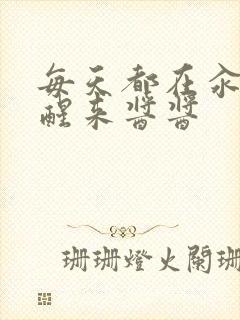 每天都在汆
醒来酱酱
珊珊燈火闌珊